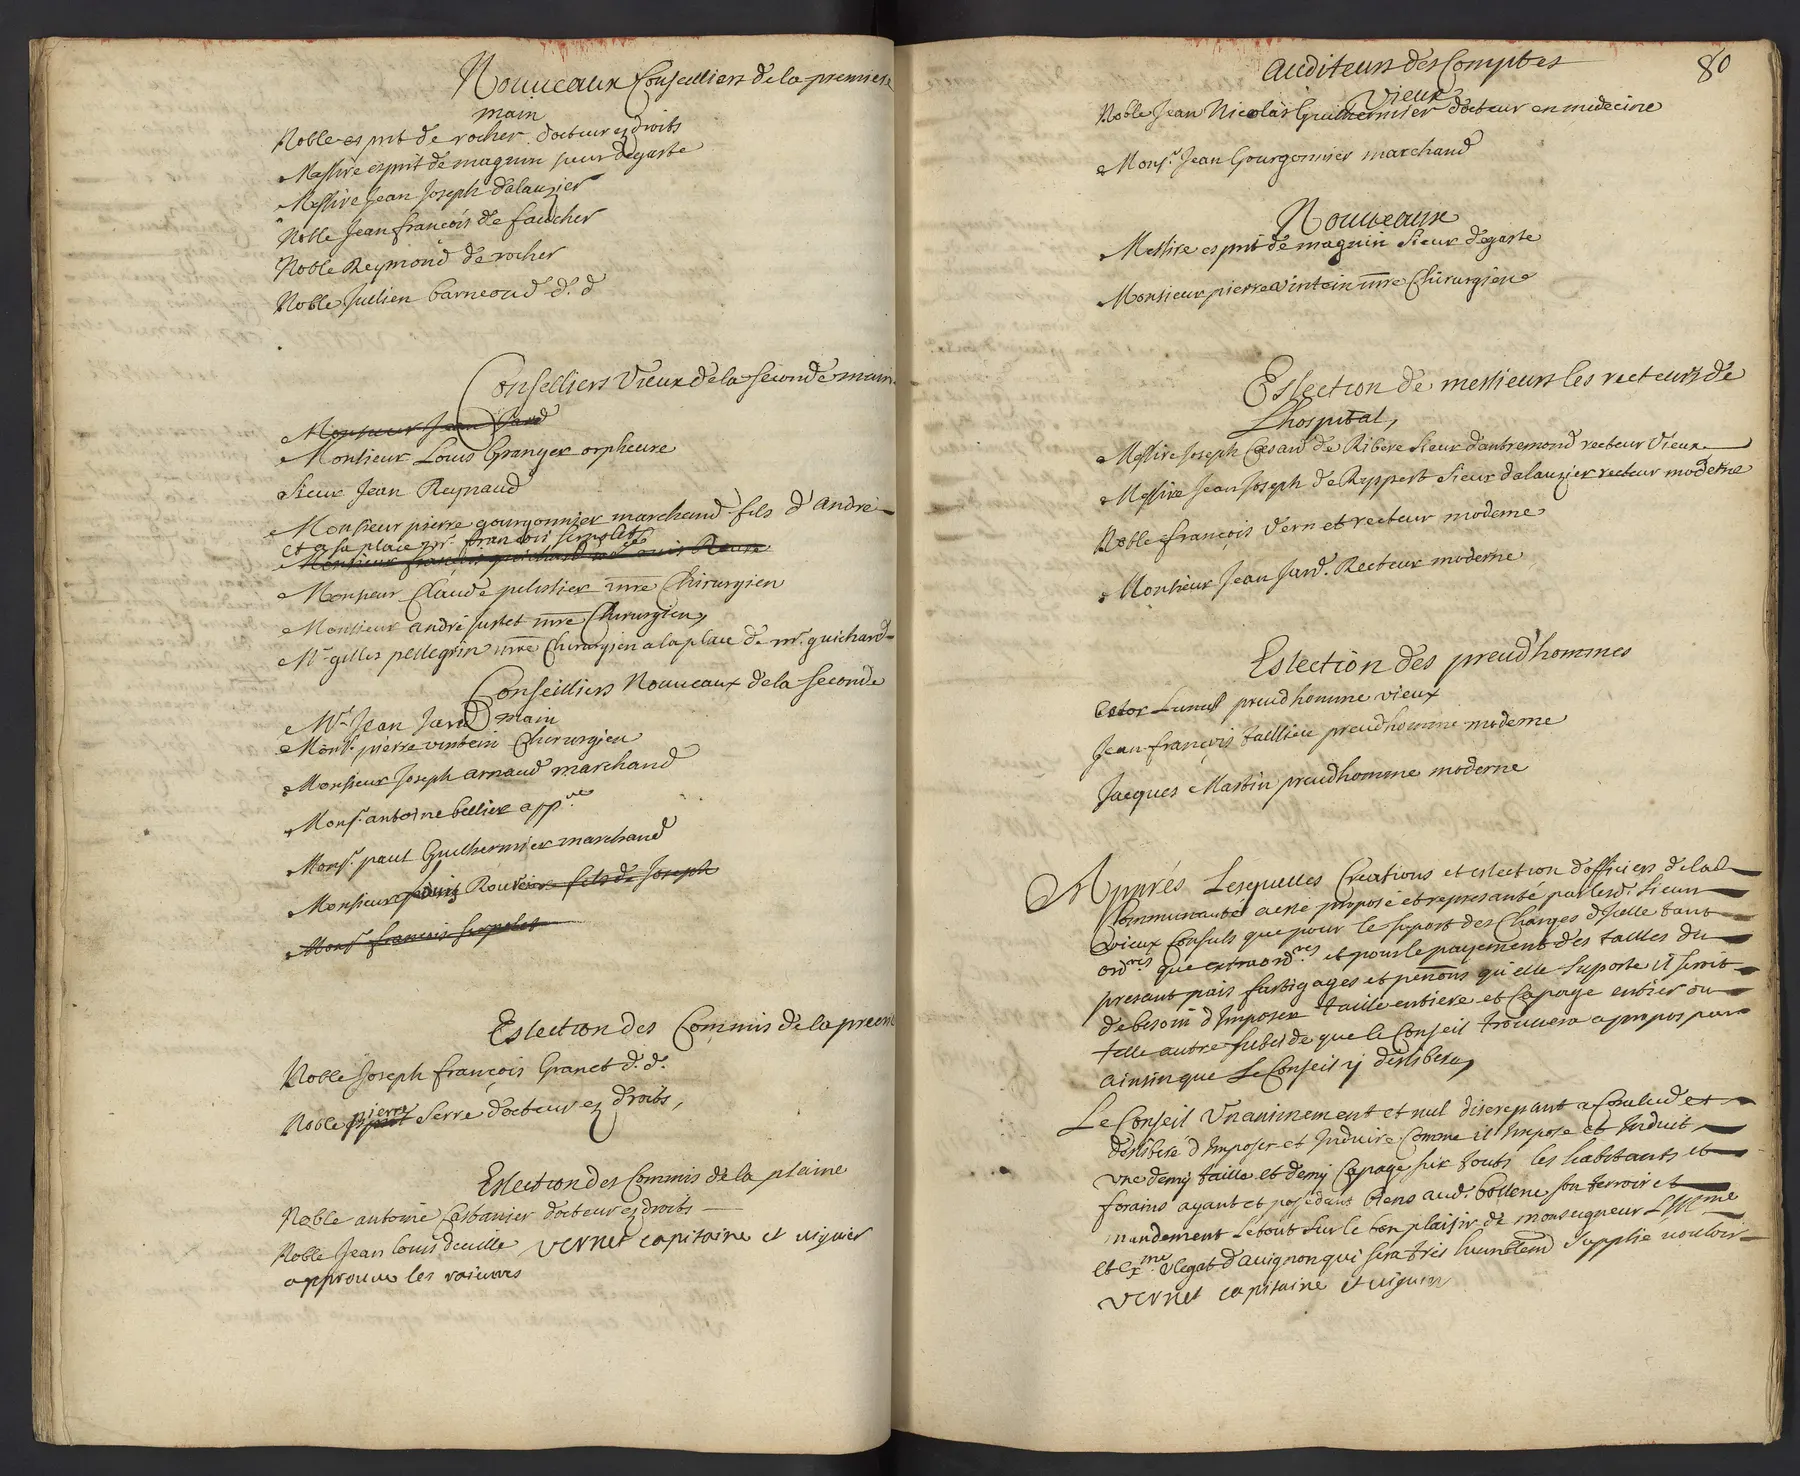 Nouueaux Conseilliers de la premiere
main
Noble esprit de rocher docteur ez droits
Messire esprit de maguin sieur degaste
Messire Jean Joseph dalauzier
Noble Jean françois de faucher
Noble Reymond de rocher
Noble Jullien barneoud d. d
Conselliers Vieux de la seconde main
Monsieur Jean Jard
Monsieur Louis Granger orpheure
sieur Jean Reynaud
Monsieur pierre gourgonnier marchand fils d'André
et a sa place mr. françois serpolet
Monsieur françois guichard
Monsieur Claude pelissier mre Chirurgien
Monsieur andré justet mre Chirurgien,
Mr. gilles pellegrin mre Chirurgien a la place de mr. guichard
Conseilliers Nouueaux de la seconde
main
Mr. Jean Jard
Monsr. pierre vintein Chirurgien
Monsieur Joseph arnaud marchand
Monsr. antoine bellier appre
Monsr. paul Guilhermier marchand
Monsieur Rouviere fils de Joseph
Monsr françois serpolet
Eslection des Commis de la premi
Noble Joseph françois Granet d. d.
Noble pierre Serre docteur ez droits,
Eslection des Commis de la plaine
Noble antoine Castanier docteur ez droits
Noble Jean louis deuille vernet capitaine et viguier
approuue les raiures
80
Auditeurs des Comptes
vieux
Noble Jean Nicolas Guilhermier docteur en medecine
Monsr. Jean Gourgonnier marchand
Nouueaux
Messire esprit de maguin sieur degaste
Monsieur pierre vintein mre Chirurgien
Eslection de messieurs les recteurs de
Lhospital,
Messire Joseph Cesard de Ribere sieur dantremond recteur vieux
Messire Jean Joseph de Ryppert sieur dalauzier recteur moderne
Noble françois Vernet recteur moderne
Monsieur Jean Jard. Recteur moderne
Eslection des preud'hommes
preudhomme vieux
Jean françois taillieu preudhomme moderne
Jacques Martin preudhomme moderne
Apprés Lesquelles Creations et eslection d'officiers de lad
Communauté a esté proposé et represanté par lesd. sieurs
vieux Consuls que pour le suport des Charges d'Icelle tant
ordres que extraordres et pour le payement des tailles du
presant pais fastigages et penons qu'elle suporte il seroit
de besoin d'Imposer taille entiere et Capage entier ou
telle autre subside que le Conseil trouuera a propos par
ainsin que Le Conseil y deslibera,
Le Conseil Vnanimement et nul discrepant a Conclud et
deslibéré d'Imposer et Induire Comme il Impose et Induit
vne demy taille et demy Capage sur touts les habitants et
forains ayant et posedant biens aud. bollene son terroir et
mandement Le tout sur le bon plaisir de monseigneur L'Illme
et exme vlegat d'auignon qui sera tres humblemt supplié vouloir
vernet capitaine et viguier